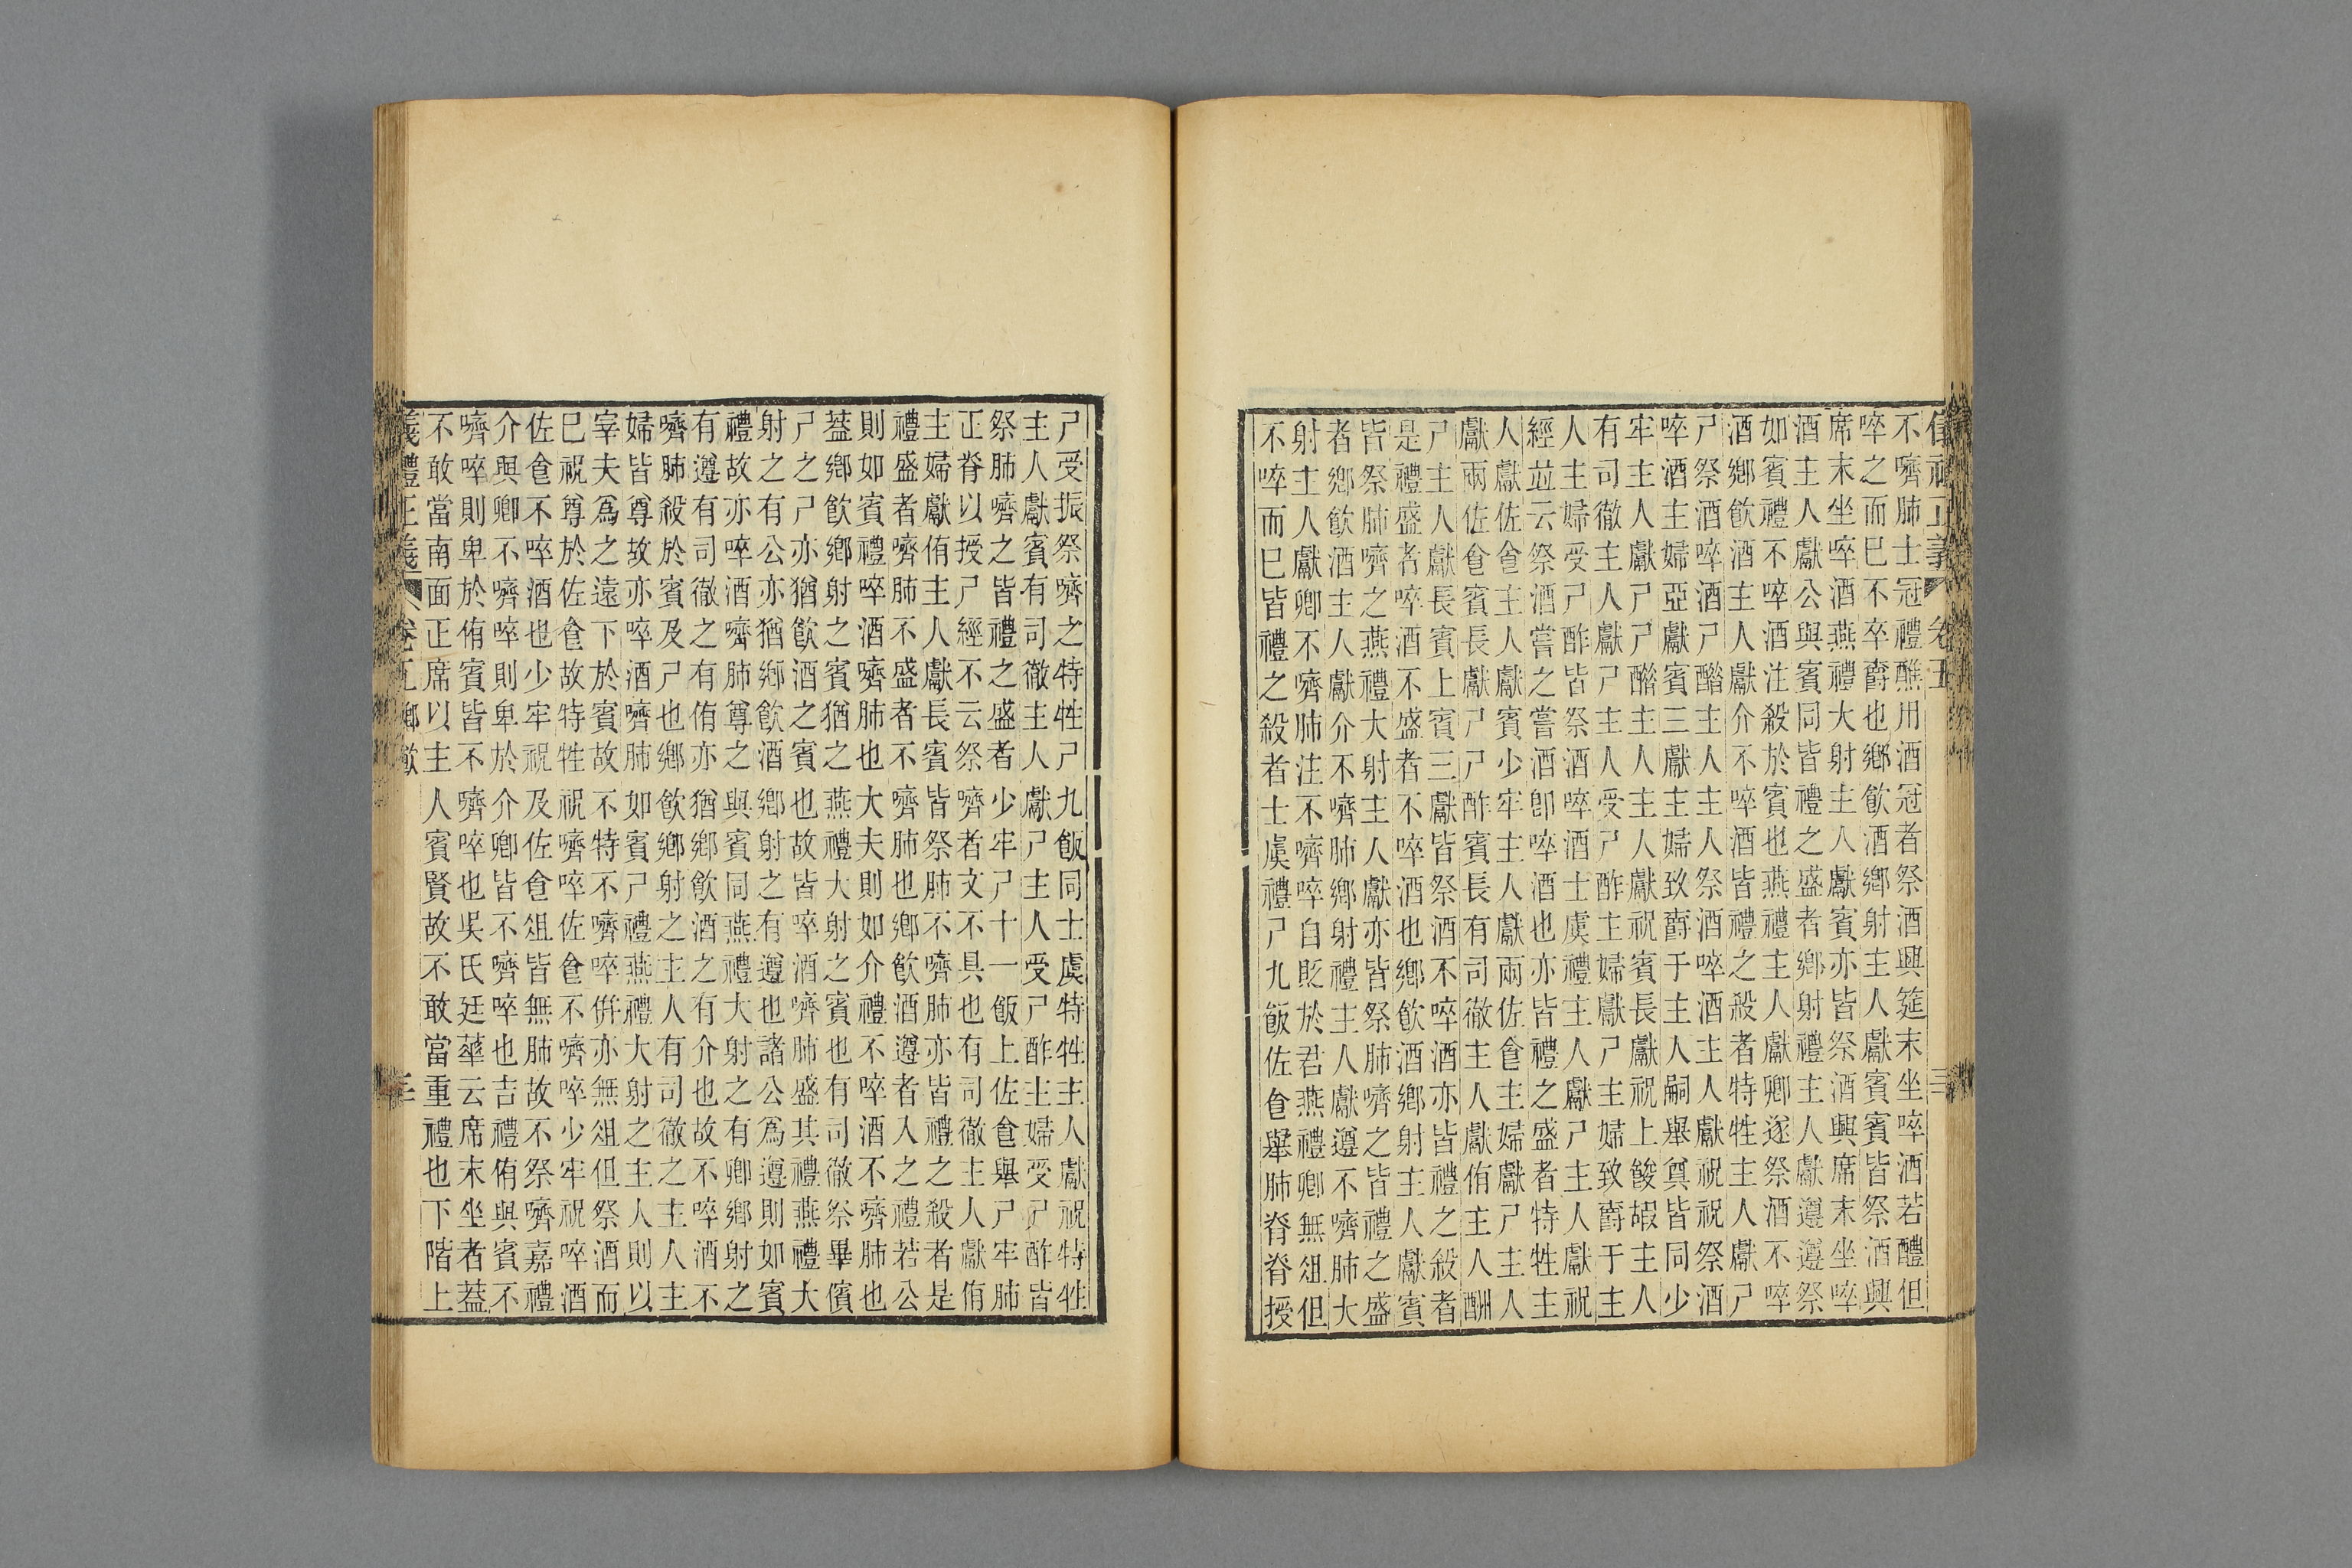 儀禮正義 卷五 三
不嚌肺士冠禮醮用酒冠者祭酒興筵末坐啐酒若醴但
啐之而巳不卒爵也鄉飮酒鄉射主人獻賓賓皆祭酒興
席末坐啐酒燕禮大射主人獻賓亦皆祭酒興席末坐啐
酒主人獻公與賓同皆禮之盛者鄉射禮主人獻遵遵祭
如賓禮不啐酒注殺於賓也燕禮主人獻卿遂祭酒不啐
酒鄉飮酒主人獻介不啐酒皆禮之殺者特牲主人獻尸
尸祭酒啐酒尸醋主人主人祭酒啐酒主人獻祝祝祭酒
啐酒主婦亞獻賓三獻主婦致爵于主人嗣舉奠皆同少
牢主人獻尸尸醋主人主人獻祝賓長獻祝上餕嘏主人
有司徹主人獻尸主人受尸酢主婦獻尸主婦致爵于主
人主婦受尸酢皆祭酒啐酒士虞禮主人獻尸主人獻祝
經並云祭酒嘗之嘗酒卽啐酒也亦皆禮之盛者特牲主
人獻佐食主人獻賓少牢主人獻兩佐食主婦獻尸主人
獻兩佐食賓長獻尸尸酢賓長有司徹主人獻侑主人酬
尸主人獻長賓上賓三獻皆祭酒不啐酒亦皆禮之殺者
是禮盛者啐酒不盛者不啐酒也鄉飮酒鄉射主人獻賓
皆祭肺嚌之燕禮大射主人獻亦皆祭肺嚌之皆禮之盛
者鄉飮酒主人獻介不嚌肺鄉射禮主人獻遵不嚌肺大
射主人獻卿不嚌肺注不嚌啐自貶於君燕禮卿無俎但
不啐而巳皆禮之殺者士虞禮尸九飯佐食舉肺脊授
尸受振祭嚌之特牲尸九飯同士虞特牲主人獻祝特牲
主人獻賓有司徹主人獻尸主人受尸酢主婦受尸酢皆
祭肺嚌之皆禮之盛者少牢尸十一飯上佐食舉尸牢肺
正脊以授尸經不云祭嚌者文不具也有司徹主人獻侑
主婦獻侑主人獻長賓皆祭肺不嚌肺亦皆禮之殺者是
禮盛者嚌肺不盛者不嚌肺也鄉飮酒遵者入之禮若公
則如賓禮啐酒嚌肺也大夫則如介禮不啐酒不嚌肺也
葢鄉飮鄉射之賓猶之燕禮大射之賓也有司徹祭畢儐
尸之尸亦猶飮酒之賓也故皆啐酒嚌肺盛其禮燕禮大
射之有公亦猶鄉飮酒鄉射之有遵也諸公爲遵則如賓
禮故亦啐酒嚌肺尊之與賓同燕禮大射之有卿鄉射之
有遵有司徹之有侑亦猶鄉飮酒之有介也故不啐酒不
嚌肺殺於賓及尸也鄉飮鄉射之主人有司徹之主人主
婦皆尊故亦啐酒嚌肺如賓尸禮燕禮大射之主人則以
宰夫爲之遠下於賓故不特不嚌啐併亦無俎但祭酒而
巳祝尊於佐食故特牲祝嚌啐佐食不嚌啐少牢祝啐酒
佐食不啐酒也少牢祝及佐食俎皆無肺故不祭嚌嘉禮
介與卿不嚌啐則卑於介卿皆不嚌啐也吉禮侑與賓不
嚌啐則卑於侑賓皆不嚌啐也吳氏廷華云席末坐者葢
不敢當南面正席以主人賓賢故不敢當重禮也下階上
儀禮正義 卷五